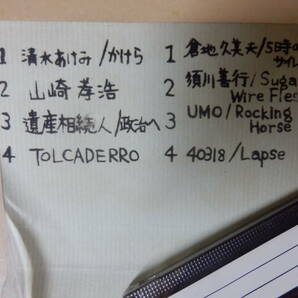 1 清水あけみ/かけら
2 山崎孝浩
3 遺産相続人/政治へ
4 TOLCADERRO
1 倉地久美夫/5時の
サイレ
2 須川善行/Suga
Wire Fles
3 UMO/Rocking
Horse
4 40318/Lapse